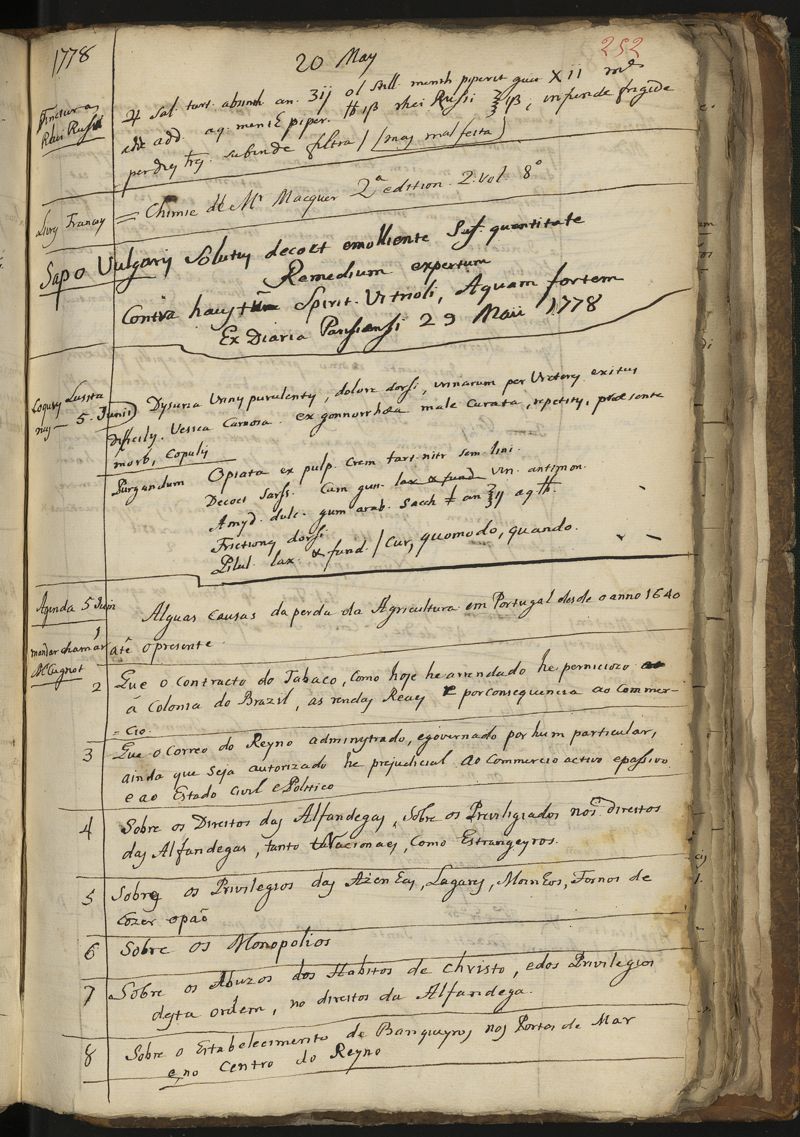 1778
20 May
252
Tinctura
Rhei Russi
♃ Sal tart. absinth an. ʒij ol still. menth piperit gutt XII
add. aq. menth piper. ℔iβ rhei Russi ℥iβ, infunde frigide
per dies subinde filtra / (may mal feita)
Livr Francez
= Chimie de Mr. Macquer 2a edition. 2. vol. 8o
Sapo Vulgaris solutus decoct emolliente Suf. quantitate
Remedium expertum
Contra haustum Spirit. Vitrioli, Aquam fortem
Ex Diario Parisiensi 29 Maii 1778
5. Junii
Dysuria Urinys purulentys, dolore dorsi, urinarum per Uretery exitus
difficily. Vesica Carnosa. ex gonnorrhoea male curata, repetitys, praesente
morbo, Copulys
Purgandum Opiata ex pulp. Crem tart. nitr sem lini.
Decoct Sarss. Cum gum. lax & fund vin. antimon.
Amyd. dulc. gum arab. Sacch an ℥ij aq ℔.
Frictiones dorsi
Pilul. lax. & fund. / Cur, quomodo, quando.
Agenda 5 Juin
1
mandar chamar
Mr Cugnot
Alguas Causas da perda da Agricultura em Portugal desde o anno 1640
atê o presente.
2 Que o Contracto do Tabaco, como hoje he arrendado he pernicioso
a Colonia do Brazil, as rendas Reaes e por consequencia ao Commer-
= cio.
3 Que o Correo do Reyno adminystrado, e governado por hum particular,
ainda que seja autorizado he prejudicial ao Commercio activo e passivo
e ao Estado Civil e Politico
4 Sobre os Direitos das Alfandegas, Sobre os Priviligiados nos direitos
das Alfandegas, tanto Nacionaes, como Estrangeyros.
5 Sobre os Privilegios das Azenhas, Lagares, Moinhos, Fornos de
Cozer o paõ
6 Sobre os Monopolios
7 Sobre os Abuzos dos Habitos de Christo, e dos Privilegios
desta ordem, no direitos da Alfandega.
8 Sobre o Estabelecimento de Banqueyros nos Portos de Mar
e no Centro do Reyno